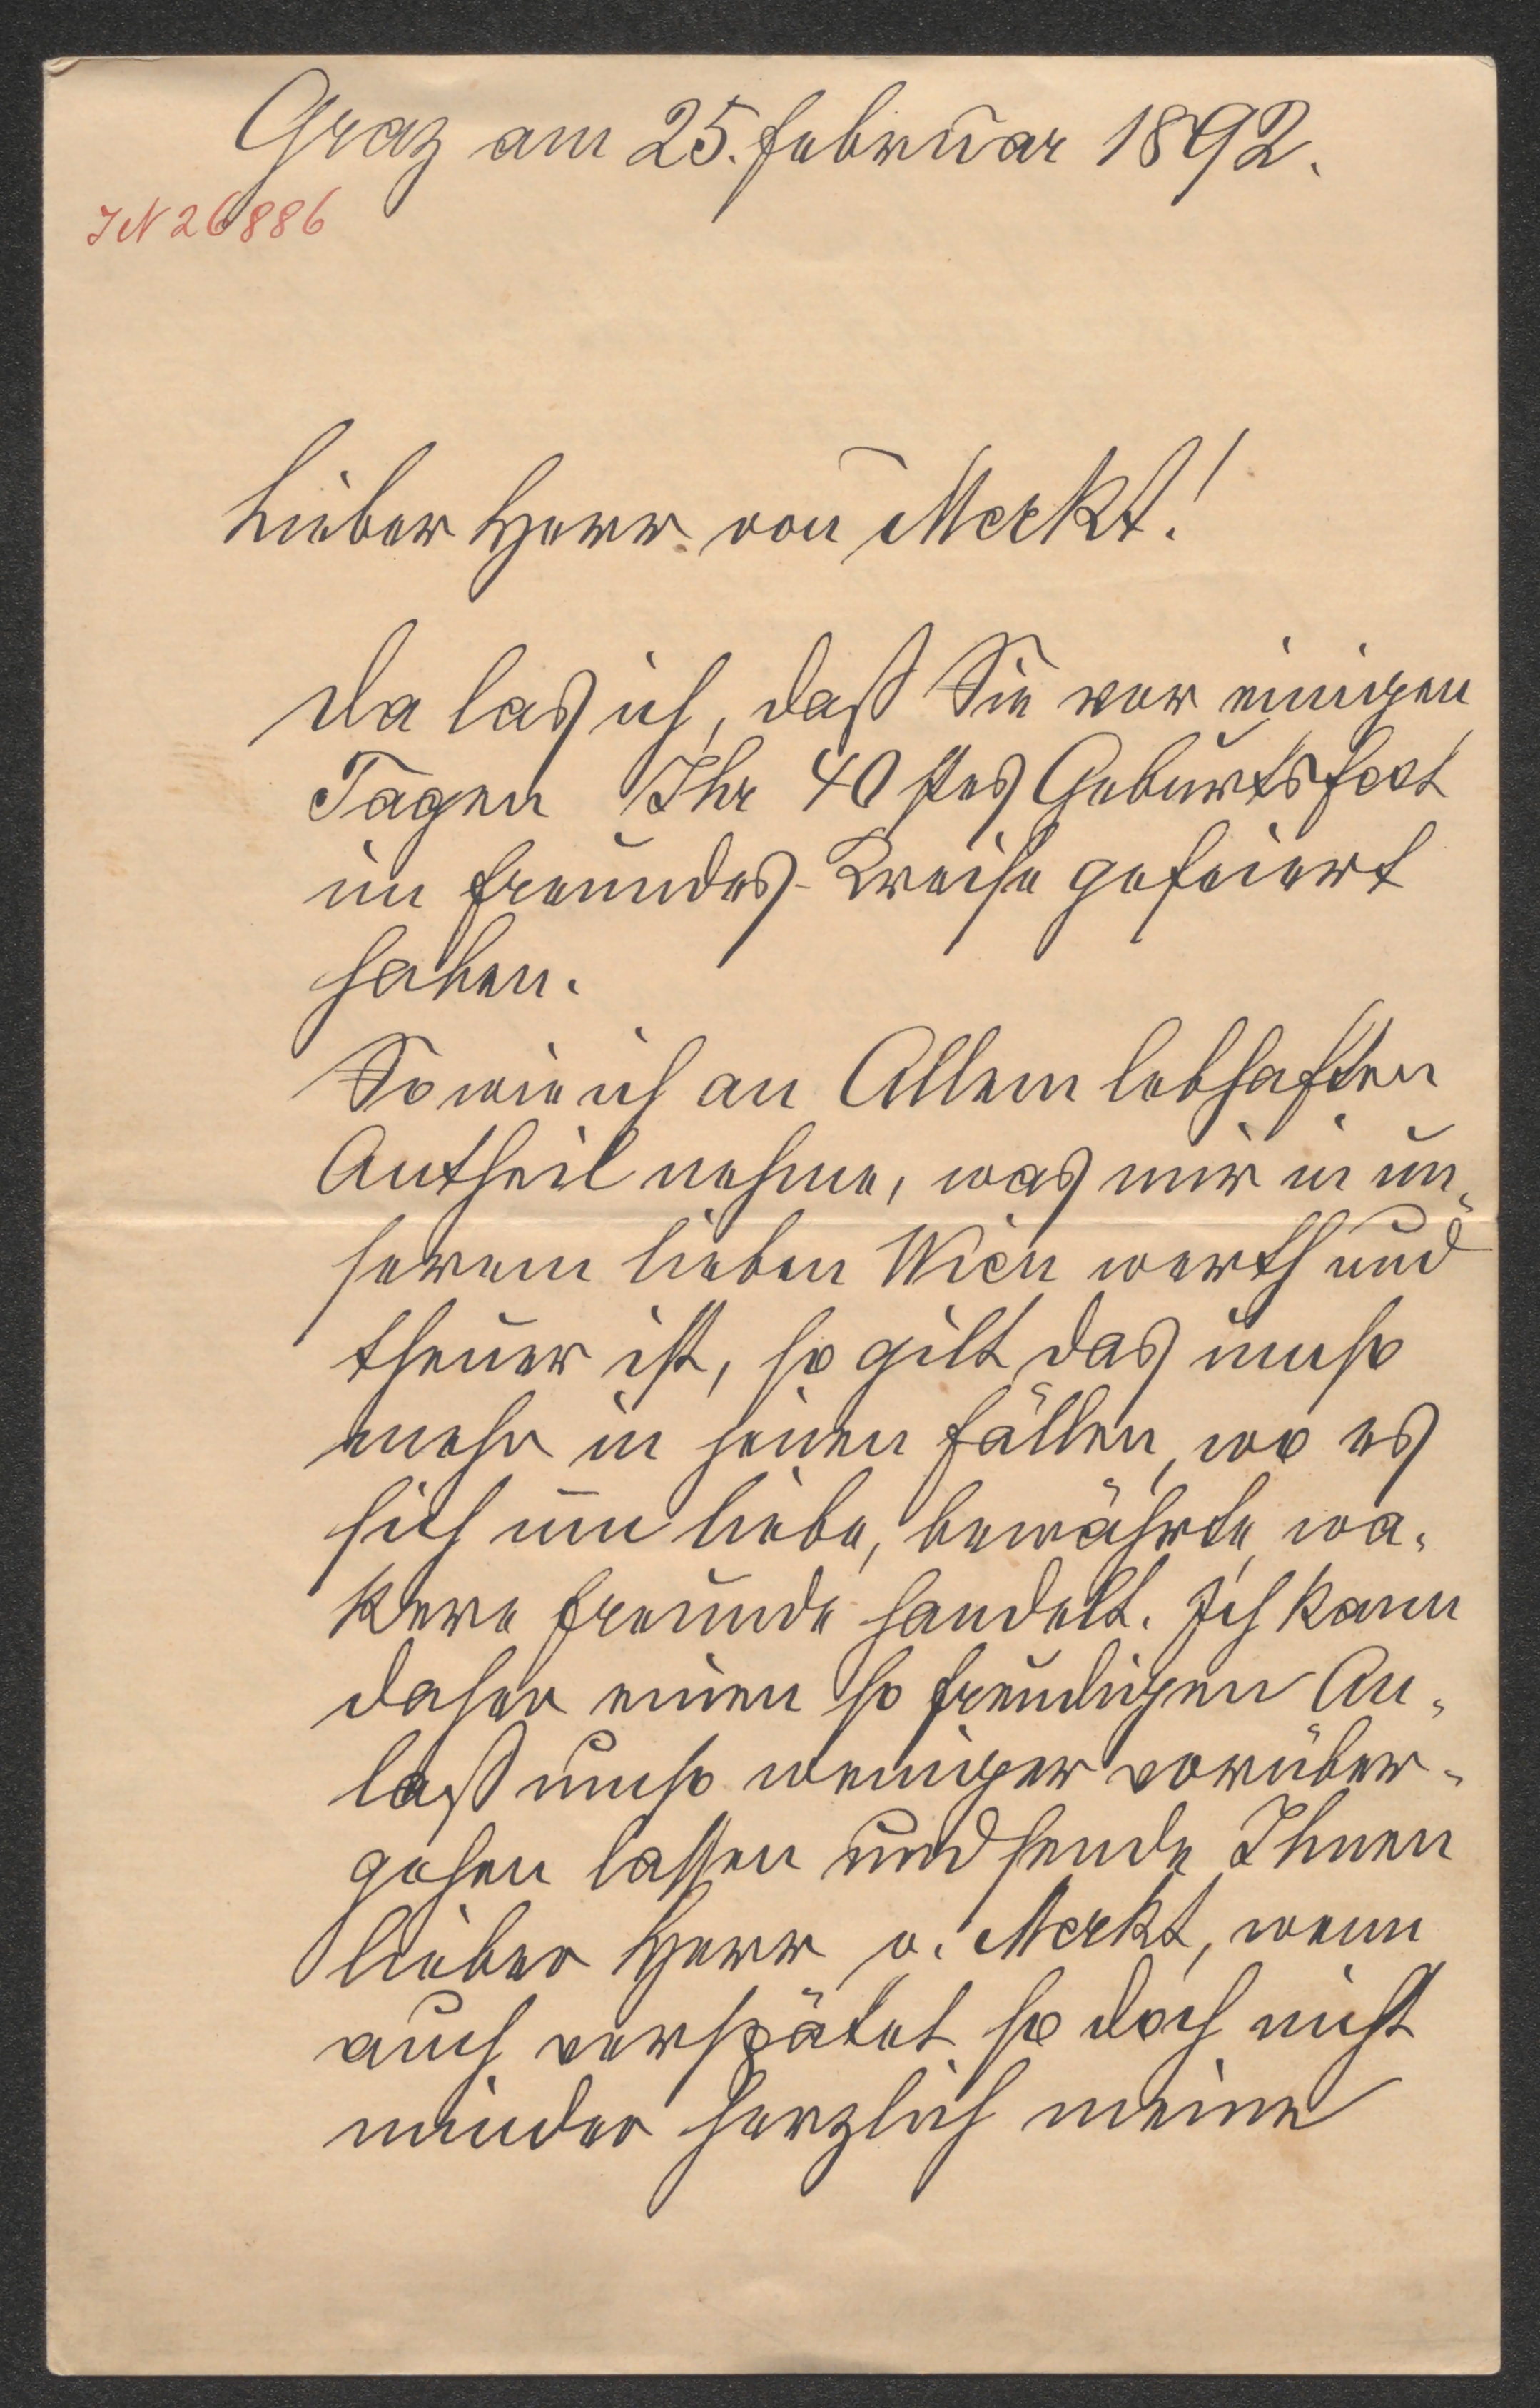 Graz am 25. Februar 1892.
IN 26886
Lieber Herr von Merkt!
Da las ich, daß Sie vor einigen
Tagen Ihr 40stes Geburtsfest
im Freundes-Kreise gefeiert
haben.
So wie ich an Allem lebhaften
Antheil nehme, was mir in un-
serem lieben Wien werth und
theuer ist, so gilt das umso
mehr in jenen Fällen, wo es
sich um liebe, bewährte, wa-
kere Freunde handelt. Ich kann
daher einen so freudigen An-
laß umso weniger vorüber-
gehen lassen und sende Ihnen
lieber Herr v. Merkt, wenn
auch verspätet so doch nicht
minder herzlich meine